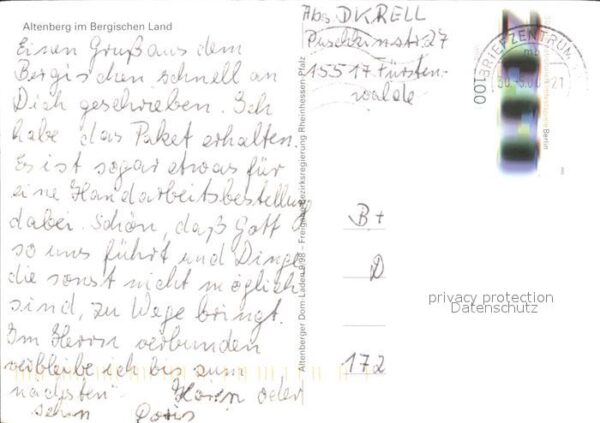 Altenberg im Bergischen Land
Einen Gruß aus dem
Bergischen schnell an
Dich geschrieben. Ich
habe das Paket erhalten.
Es ist sogar etwas für
eine Handarbeitsbestellung
dabei. Schön, daß Gott
so uns führt und Dinge
die sonst nicht möglich
sind, zu Wege bringt.
Im Herrn verbunden
verbleibe ich bis zum
nächsten Hören oder
sehn Doris
Altenberger Dom-Laden 9.98 - Freigabe Bezirksregierung Rheinhessen-Pfalz
Abs. D KRELL
Puschkinstr. 27
15517 Fürsten-
walde
BRIEFZENTRUM
100
Berlin
B+
D
172
privacy protection
Datenschutz